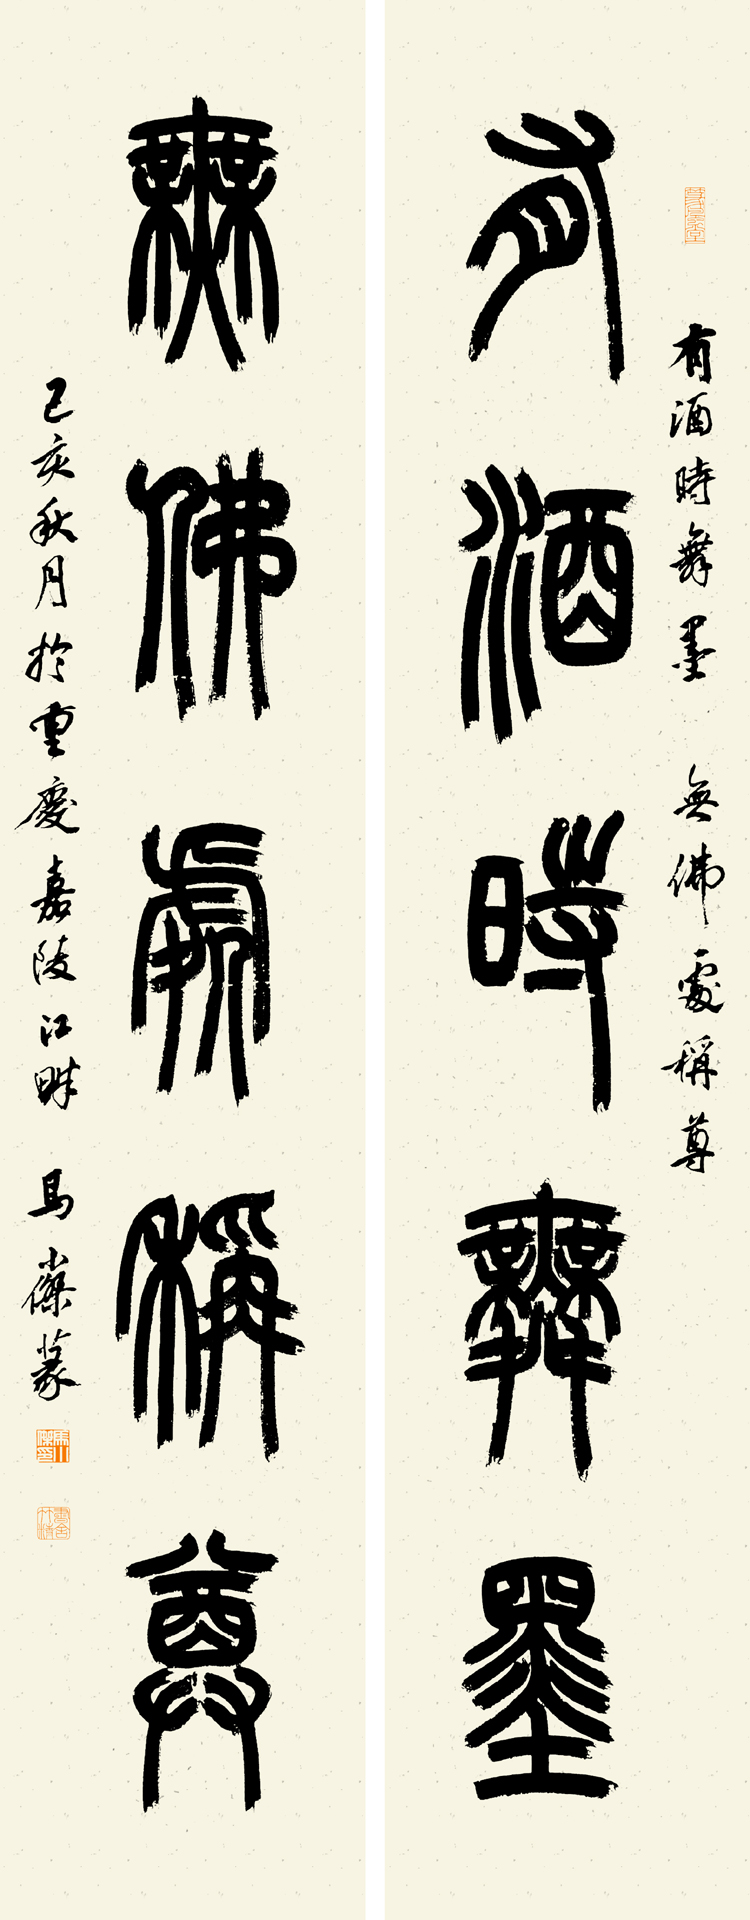 有酒時舞墨 無佛處稱尊
有酒時舞墨
無佛處稱尊
己亥秋月於重慶嘉陵江畔 馬小傑篆